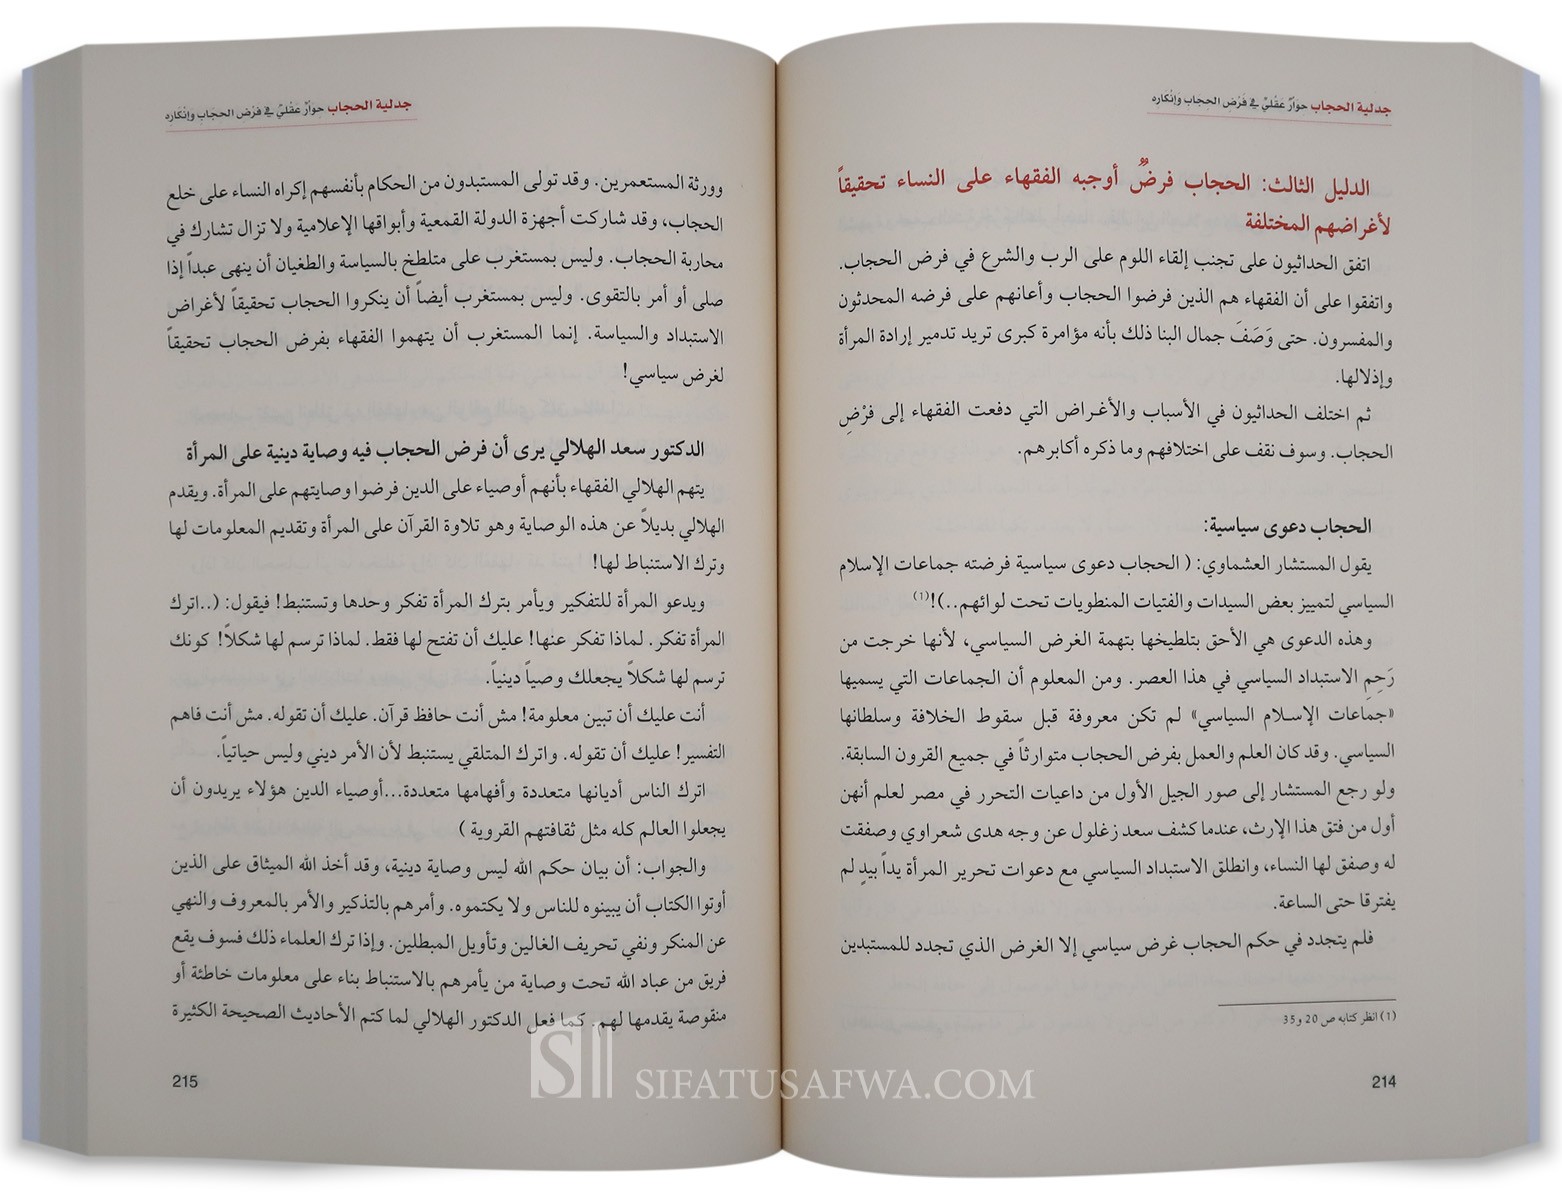 جدلية الحجاب حوارٌ عَقْليٌّ في فَرْضِ الحِجَابِ وَإنْكَارِه
الدليل الثالث: الحجاب فرضٌ أوجبه الفقهاء على النساء تحقيقاً
لأغراضهم المختلفة
اتفق الحداثيون على تجنب إلقاء اللوم على الرب والشرع في فرض الحجاب.
واتفقوا على أن الفقهاء هم الذين فرضوا الحجاب وأعانهم على فرضه المحدثون
والمفسرون. حتى وَصَفَ جمال البنا ذلك بأنه مؤامرة كبرى تريد تدمير إرادة المرأة
وإذلالها.
ثم اختلف الحداثيون في الأسباب والأغراض التي دفعت الفقهاء إلى فرْضِ
الحجاب. وسوف نقف على اختلافهم وما ذكره أكابرهم.
الحجاب دعوى سياسية:
يقول المستشار العشماوي: ( الحجاب دعوى سياسية فرضته جماعات الإسلام
السياسي لتمييز بعض السيدات والفتيات المنطويات تحت لوائهم..)!(١)
وهذه الدعوى هي الأحق بتلطيخها بتهمة الغرض السياسي، لأنها خرجت من
رَحِمِ الاستبداد السياسي في هذا العصر. ومن المعلوم أن الجماعات التي يسميها
«جماعات الإسلام السياسي» لم تكن معروفة قبل سقوط الخلافة وسلطانها
السياسي. وقد كان العلم والعمل بفرض الحجاب متوارثاً في جميع القرون السابقة.
ولو رجع المستشار إلى صور الجيل الأول من داعيات التحرر في مصر لعلم أنهن
أول من فتق هذا الإرث، عندما كشف سعد زغلول عن وجه هدى شعراوي وصفقت
له وصفق لها النساء، وانطلق الاستبداد السياسي مع دعوات تحرير المرأة يداً بيدٍ لم
يفترقا حتى الساعة.
فلم يتجدد في حكم الحجاب غرض سياسي إلا الغرض الذي تجدد للمستبدين
(١) انظر كتابه ص 20 و35
214
جدلية الحجاب حوارٌ عَقْليٌّ في فَرْضِ الحِجَابِ وَإنْكَارِه
وورثة المستعمرين. وقد تولى المستبدون من الحكام بأنفسهم إكراه النساء على خلع
الحجاب، وقد شاركت أجهزة الدولة القمعية وأبواقها الإعلامية ولا تزال تشارك في
محاربة الحجاب. وليس بمستغرب على متلطخ بالسياسة والطغيان أن ينهى عبداً إذا
صلى أو أمر بالتقوى. وليس بمستغرب أيضاً أن ينكروا الحجاب تحقيقاً لأغراض
الاستبداد والسياسة. إنما المستغرب أن يتهموا الفقهاء بفرض الحجاب تحقيقاً
لغرض سياسي!
الدكتور سعد الهلالي يرى أن فرض الحجاب فيه وصاية دينية على المرأة
يتهم الهلالي الفقهاء بأنهم أوصياء على الدين فرضوا وصايتهم على المرأة. ويقدم
الهلالي بديلاً عن هذه الوصاية وهو تلاوة القرآن على المرأة وتقديم المعلومات لها
وترك الاستنباط لها!
ويدعو المرأة للتفكير ويأمر بترك المرأة تفكر وحدها وتستنبط! فيقول: (..اترك
المرأة تفكر. لماذا تفكر عنها! عليك أن تفتح لها فقط. لماذا ترسم لها شكلاً! كونك
ترسم لها شكلاً يجعلك وصياً دينياً.
أنت عليك أن تبين معلومة! مش أنت حافظ قرآن. عليك أن تقوله. مش أنت فاهم
التفسير! عليك أن تقوله. واترك المتلقي يستنبط لأن الأمر ديني وليس حياتياً.
اترك الناس أديانها متعددة وأفهامها متعددة...أوصياء الدين هؤلاء يريدون أن
يجعلوا العالم كله مثل ثقافتهم القروية )
والجواب: أن بيان حكم الله ليس وصاية دينية، وقد أخذ الله الميثاق على الذين
أوتوا الكتاب أن يبينوه للناس ولا يكتموه. وأمرهم بالتذكير والأمر بالمعروف والنهي
عن المنكر ونفي تحريف الغالين وتأويل المبطلين. وإذا ترك العلماء ذلك فسوف يقع
فريق من عباد الله تحت وصاية من يأمرهم بالاستنباط بناء على معلومات خاطئة أو
منقوصة يقدمها لهم. كما فعل الدكتور الهلالي لما كتم الأحاديث الصحيحة الكثيرة
215
SIFATUSAFWA.COM